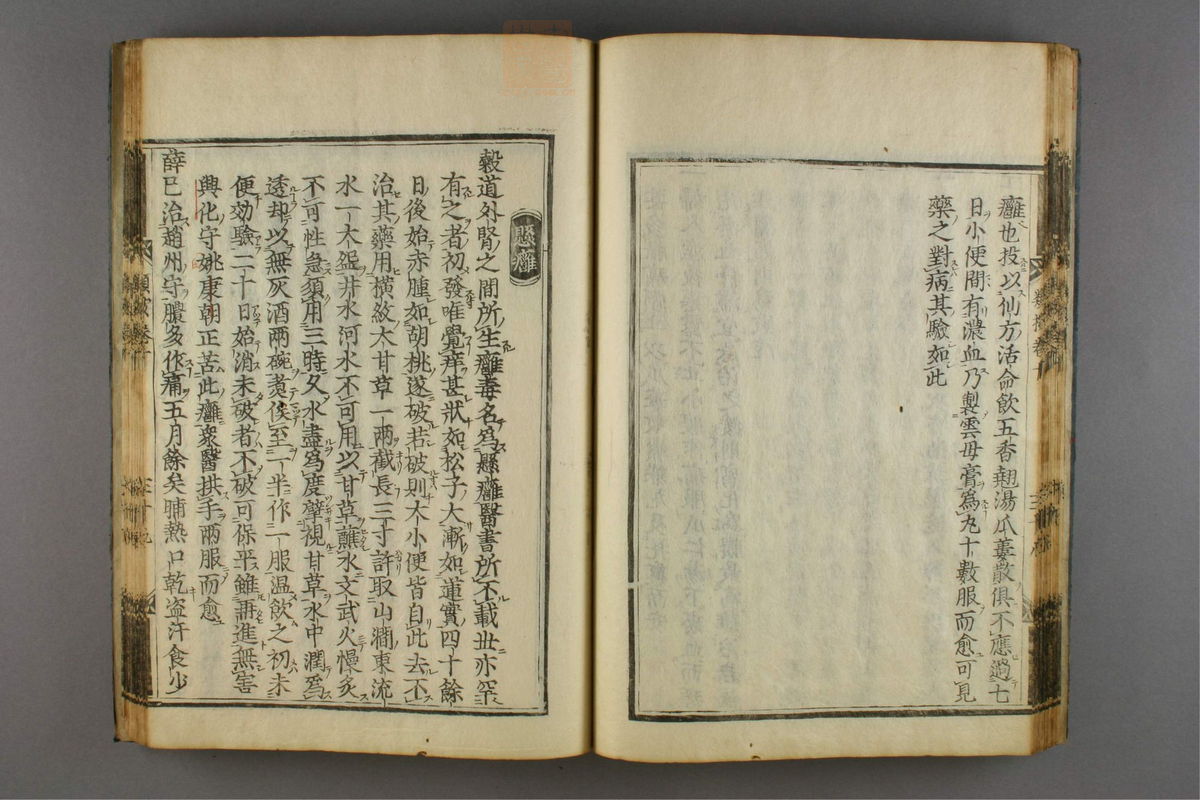 癰也投以仙方活命飲五香翹湯瓜蔞散俱不應過七
日小便間有濃血乃製雲母膏爲丸十數服而愈可見
藥之對病其驗如此
懸癰
穀道外腎之間所生癰毒名爲懸癰醫書所不載世亦罕
有之者初發唯覺痒甚狀如松子大漸如蓮實四十餘
日後始赤腫如胡桃遂破若破則大小便皆自此去不
治其藥用橫紋大甘草一兩截長三寸許取山澗東流
水一大盌井水河水不可用以甘草蘸水文武火慢炙
不可性急須用三時久水盡爲度擘視甘草水中潤爲
透却以無灰酒兩碗煮俟至一半作一服温飲之初未
便効驗二十日始消未破者不破可保平雖再進無害
興化守姚康朝正苦此癰衆醫拱手兩服而愈
薛巳治趙州守膿多作痛五月餘矣晡熱口乾盜汗食少